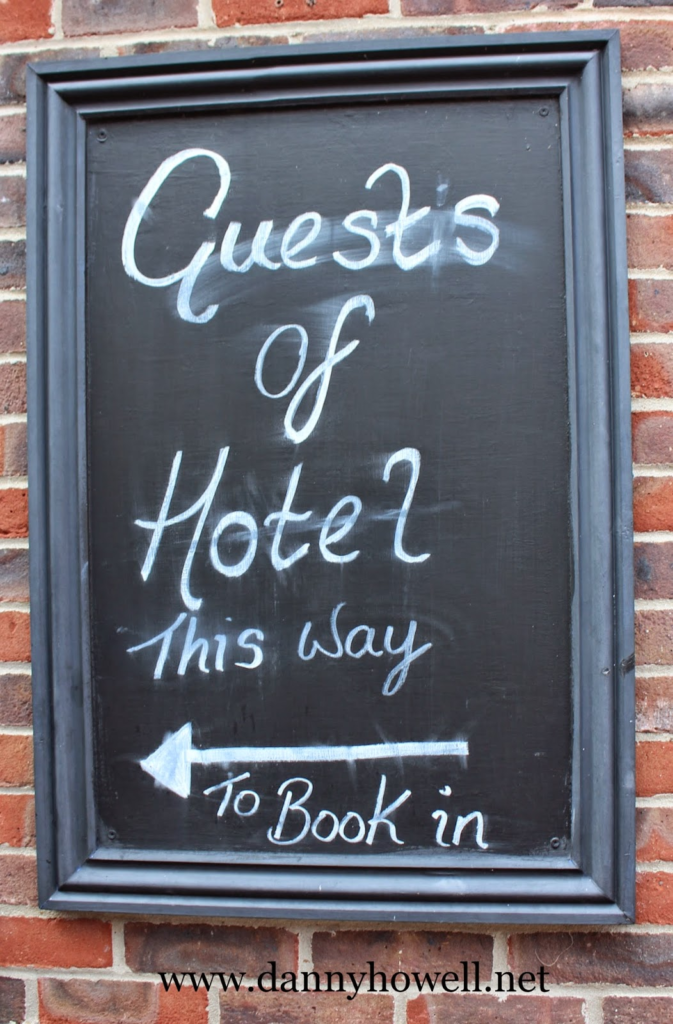 Guest's
of
Hotel
This way
To Book in
www.dannyhowell.net